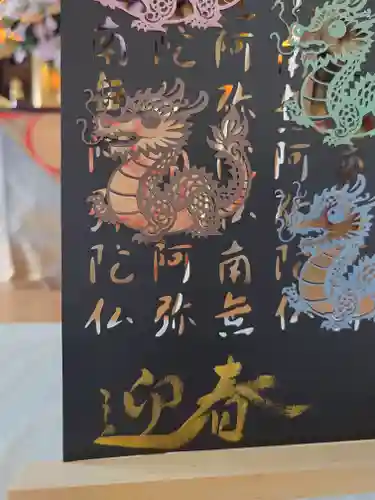 阿弥陀仏
阿弥南無
陀阿弥
南無陀仏
迎春